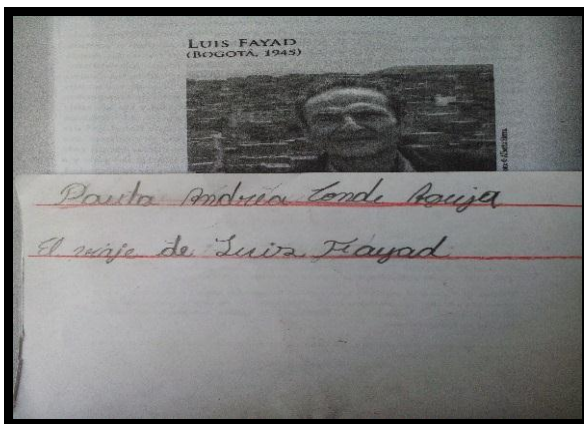 LUIS FAYAD
(BOGOTÁ, 1945)
Paula Andrea Conde
El viaje de Luis Fayad